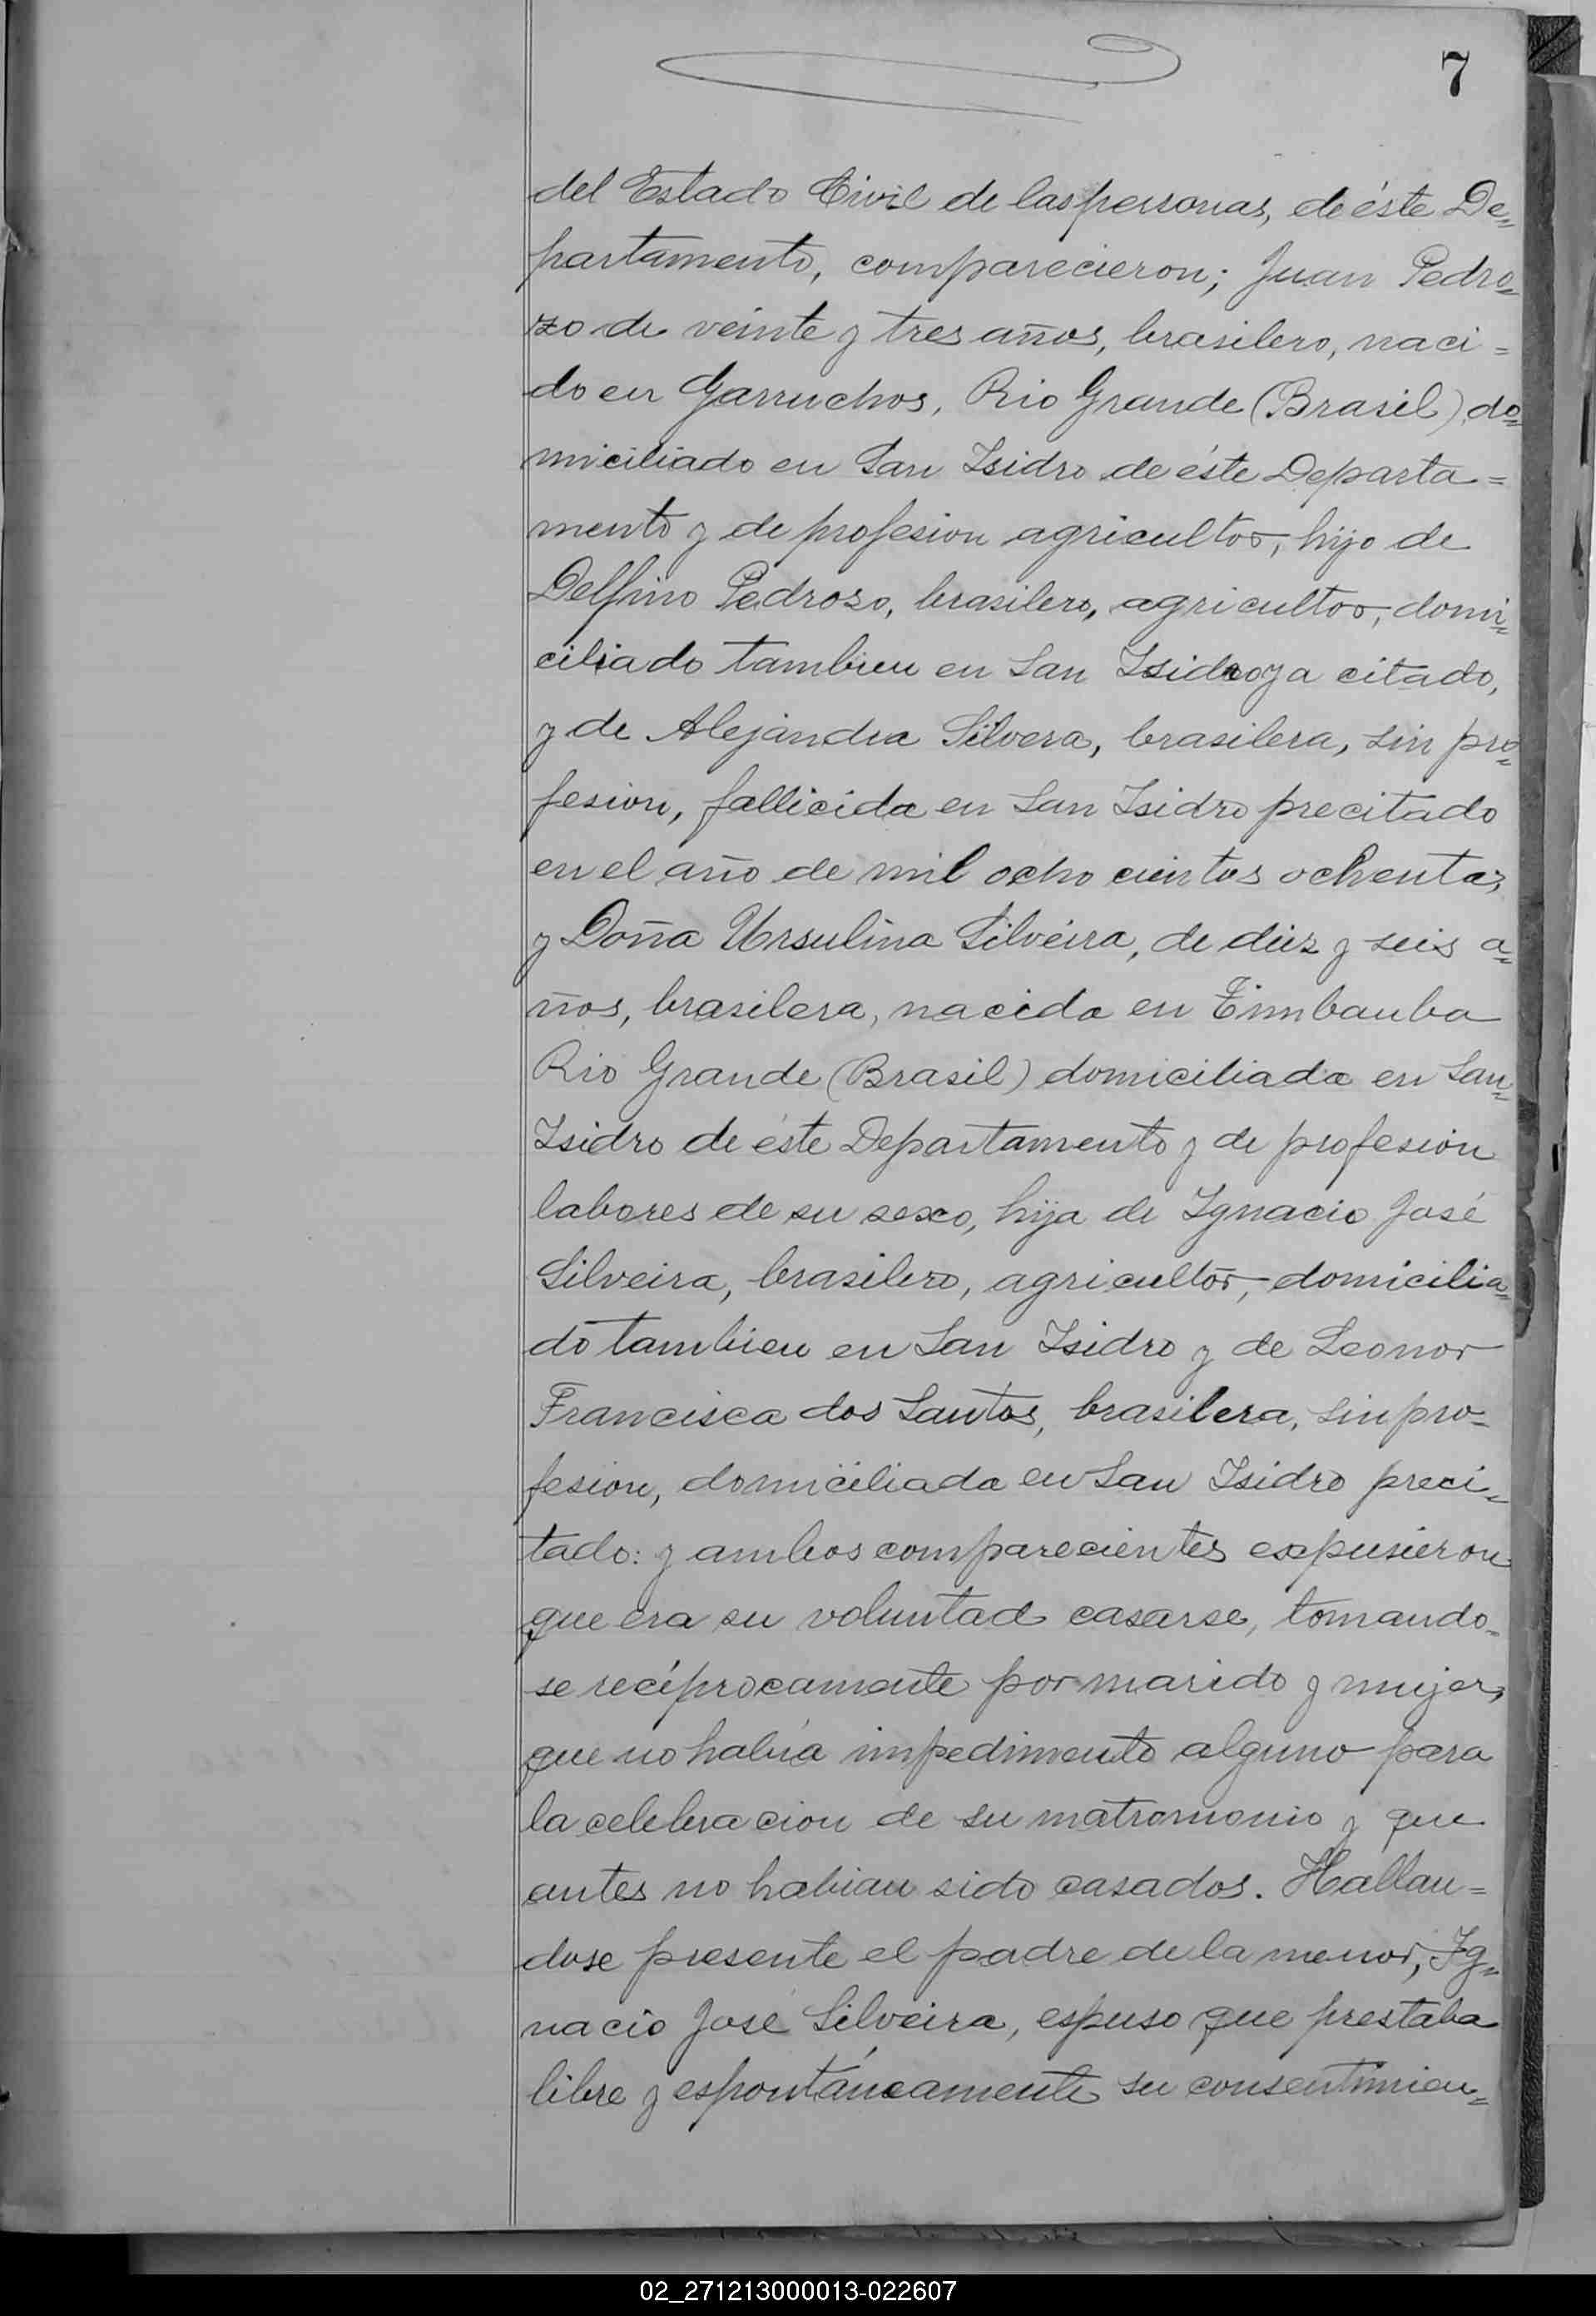 7
del Estado Civil de las personas, de éste De=
partamento, comparecieron; Juan Pedro=
zo de veinte y tres años, brasilero, naci=
do en Garruchos, Rio Grande (Brasil) do=
miciliado en San Isidro de éste Departa=
mento y de profesion agricultor, hijo de
Delfino Pedroso, brasilero, agricultor, domi=
ciliado tambien en San Isidro ya citado,
y de Alejandra Silvera, brasilera, sin pro=
fesion, fallicida en San Isidro precitado
en el año de mil ocho cientos ochenta;
y Doña Ursulina Silvéira, de diez y seis a=
ños, brasilera, nacida en Timbauba
Rio Grande (Brasil) domiciliada en San=
Isidro de éste Departamento y de profesion
labores de su sexo, hija de Ignacio José
Silveira, brasilero, agricultor, domicilia=
do tambien en San Isidro y de Leonor
Francisca dos Santos, brasilera, sin pro=
fesion, domiciliada en San Isidro preci=
tado: y ambos comparecientes expusieron
que era su voluntad casarse, tomando=
se recíprocamente por marido y mujer,
que no había impedimento alguno para
la celebracion de su matromonio y que
antes no habian sido casados. Hallan=
dose presente el padre de la menor, Ig=
nacio José Silveira, espuso que prestaba
libre y espontáneamente su consentimien=
02_271213000013-022607